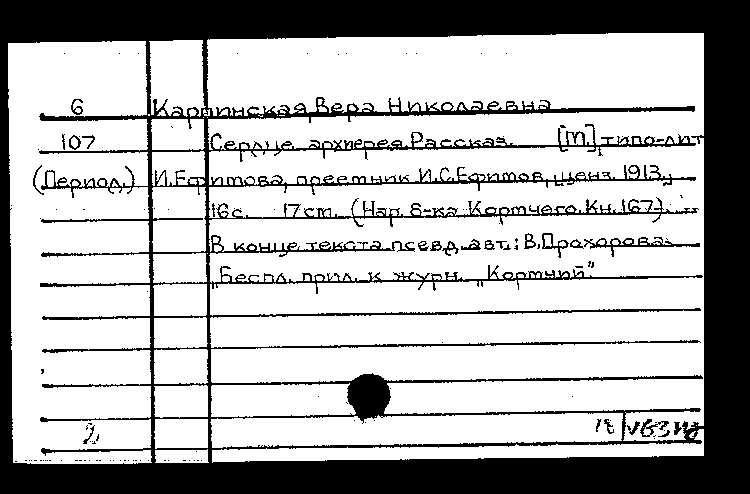 6 Карпинская, Вера Николаевна
107 Сердце архиерея. Рассказ. [М.], типо-лит
(Период.) И.Ефимова, преемник И.С.Ефимов, ценз. 1913.
16 с. 17 см. (Нар. б-ка Кормчего. Кн. 167).
В конце текста псевд. авт.: В.Прохорова.
"Беспл. прил. к журн. "Кормчий"
2